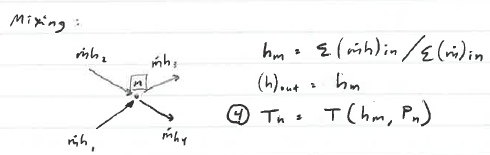 Mixing :
ṁh₂ ṁh₃
m
ṁh₁ ṁh₄
hₘ = Σ(ṁh)in / Σ(ṁ)in
(h)out = hₘ
④ Tₙ = T(hₘ, Pₙ)